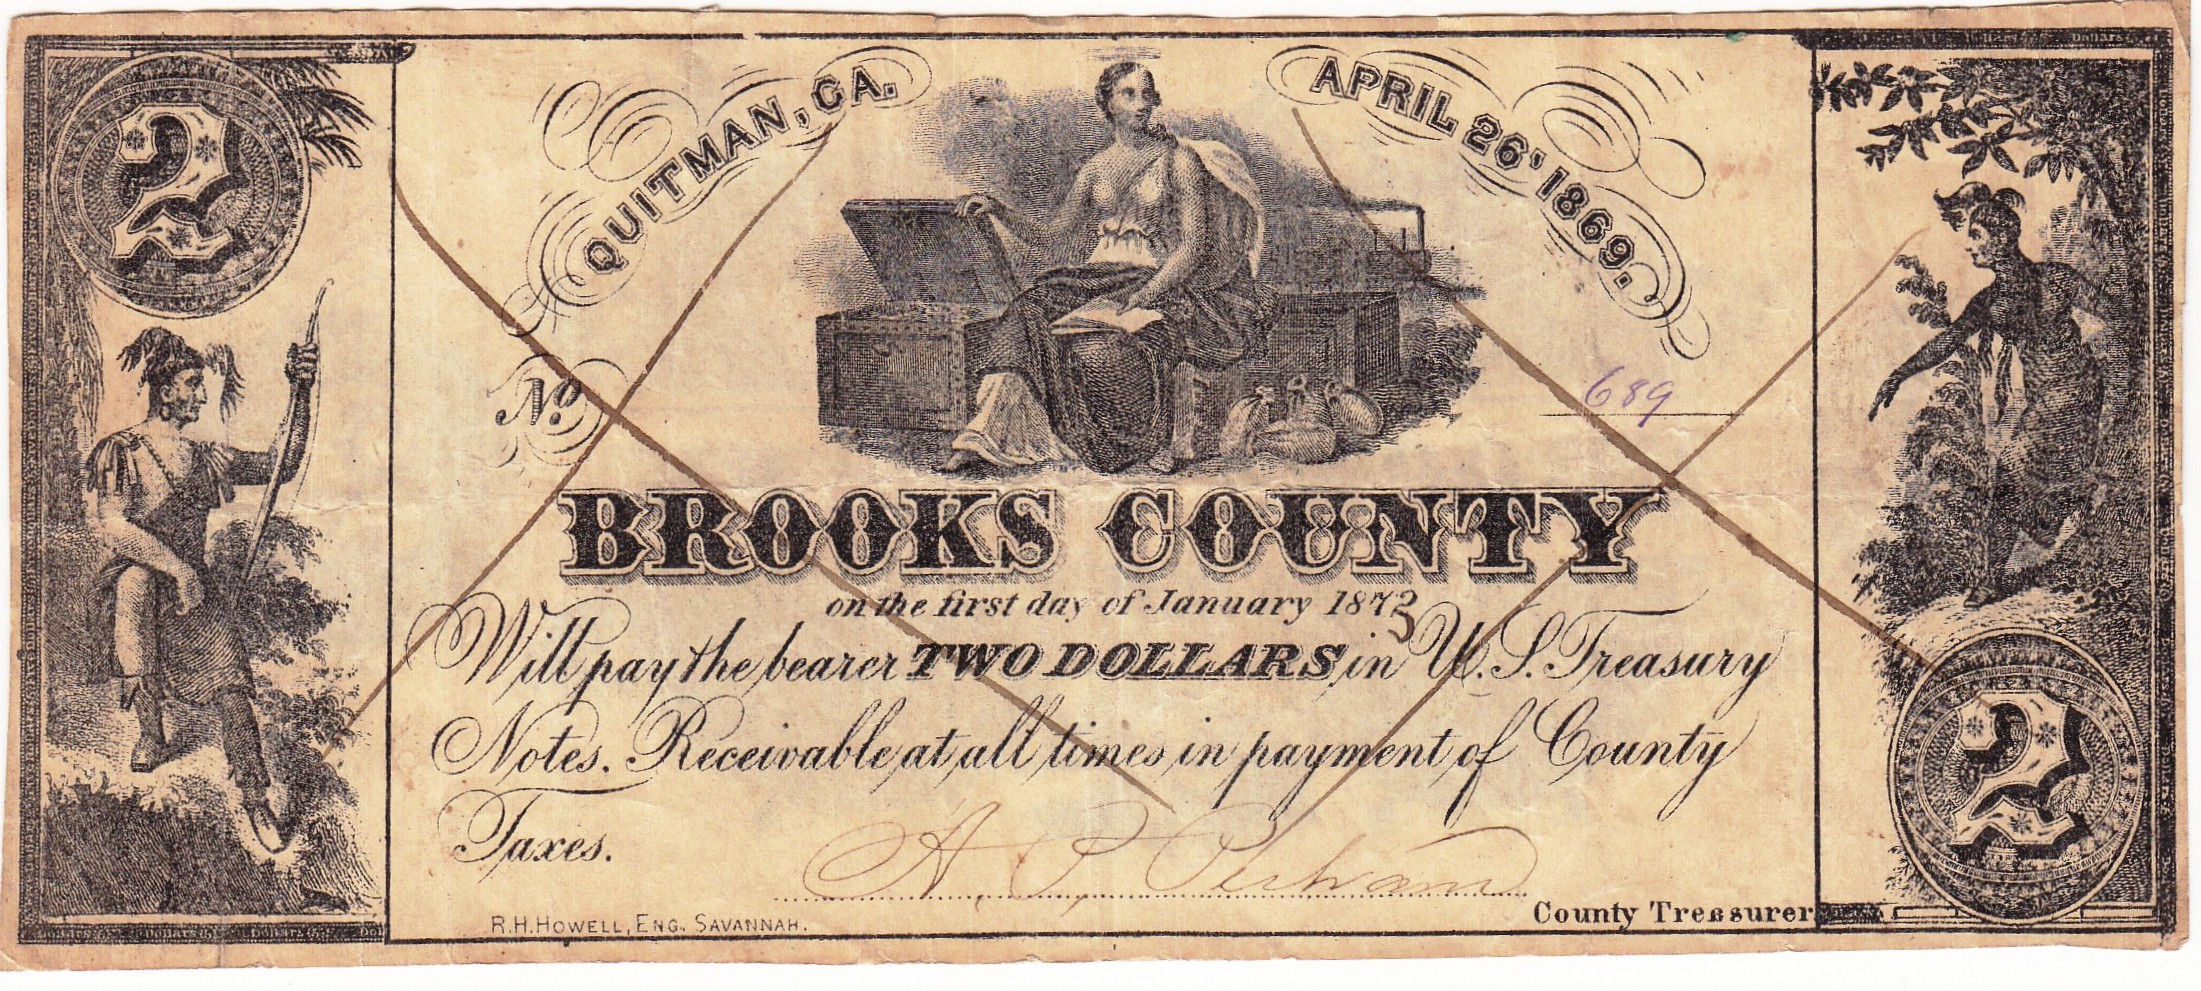 2
QUITMAN, GA.
APRIL 26' 1869.
No.
689
BROOKS COUNTY
on the first day of January 1873
Will pay the bearer TWO DOLLARS in U.S. Treasury
Notes. Receivable at all times in payment of County
Taxes.
County Treasurer
R.H. HOWELL, ENG. SAVANNAH.
2